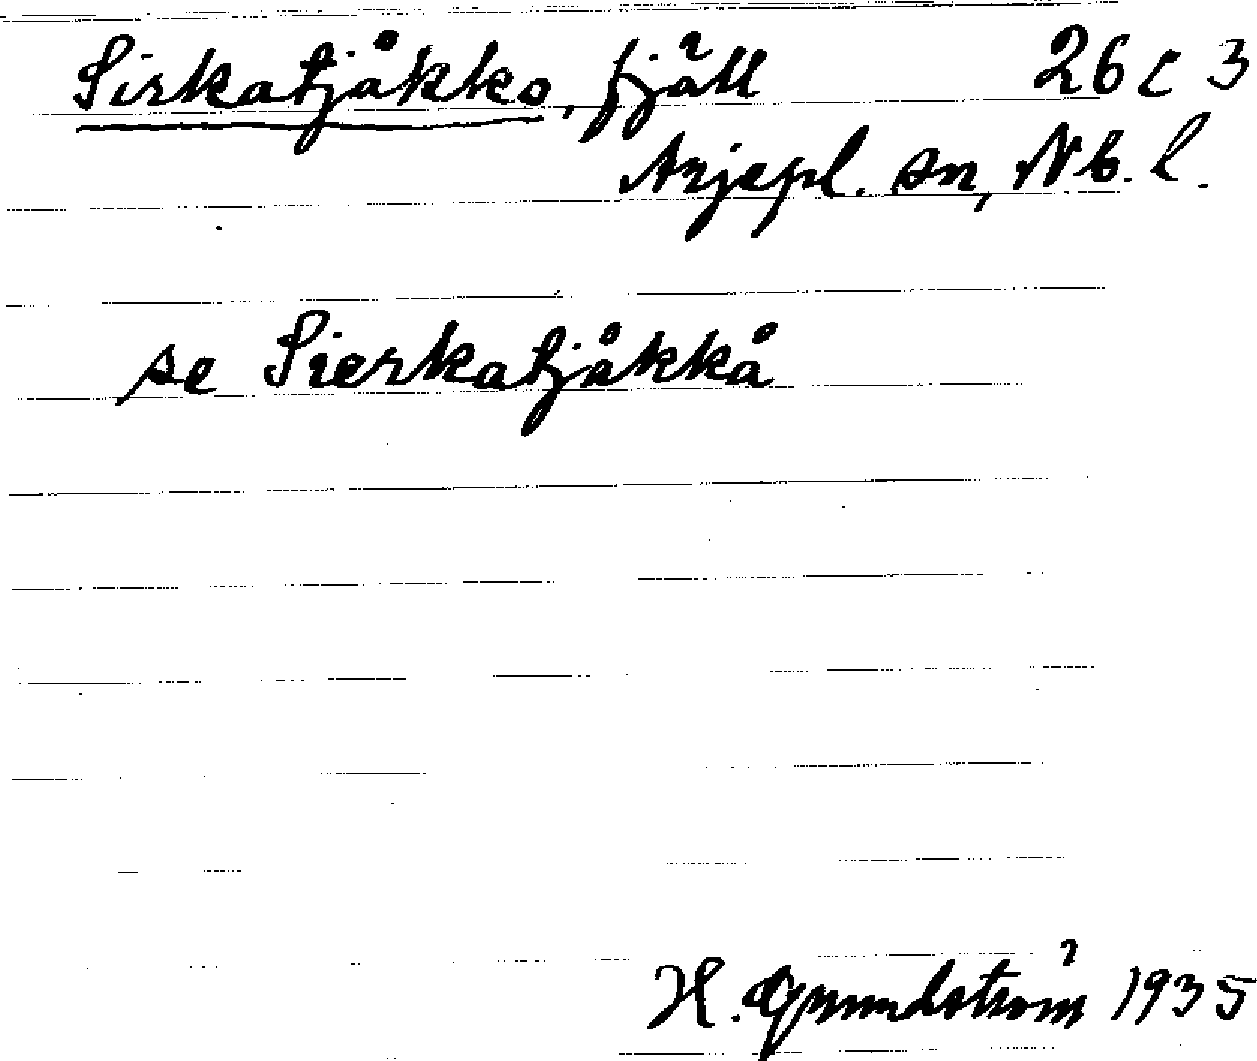 Sirkatjåkko, fjäll 26 C 3
Arjepl. sn, Nb. l.
se Sierkatjåkkå
H. Grundström 1935